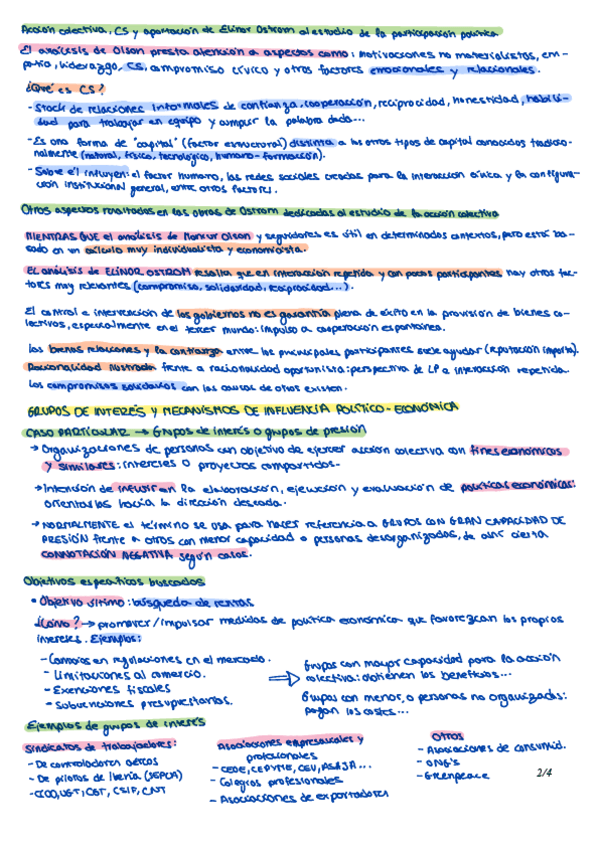 Acción colectiva, CS y aportación de Elinor Ostrom al estudio de la participación política
El análisis de Olson presta atención a aspectos como: motivaciones no materialistas, em-
patía, liderazgo, CS, compromiso cívico y otros factores emocionales y relacionales.
¿Qué es CS?
- Stock de relaciones informales de confianza, cooperación, reciprocidad, honestidad, habili-
dad para trabajar en equipo y cumplir la palabra dada...
- Es una forma de "capital" (factor estructural) distinta a los otros tipos de capital conocidos tradicio-
nalmente (natural, físico, tecnológico, humano-formación).
- Sobre él influyen: el factor humano, las redes sociales creadas para la interacción cívica y la configura-
ción institucional general, entre otros factores.
Otros aspectos resaltados en las obras de Ostrom dedicadas al estudio de la acción colectiva
MIENTRAS QUE el análisis de Mancur Olson y seguidores es útil en determinados contextos, pero está ba-
sado en un cálculo muy individualista y economicista.
EL análisis de ELINOR OSTROM resalta que en interacción repetida y con pocos participantes hay otros fac-
tores muy relevantes (compromiso, solidaridad, reciprocidad...).
El control e intervención de los gobiernos no es garantía plena de éxito en la provisión de bienes co-
lectivos, especialmente en el tercer mundo: impulso a cooperación espontánea.
Las buenas relaciones y la confianza entre los principales participantes suele ayudar (reputación importa).
Racionalidad ilustrada frente a racionalidad oportunista: perspectiva de LP e interacción repetida.
Los compromisos solidarios con las causas de otros existen.
GRUPOS DE INTERÉS Y MECANISMOS DE INFLUENCIA POLÍTICO-ECONÓMICA
CASO PARTICULAR → Grupos de interés o grupos de presión
→ Organizaciones de personas con objetivo de ejercer acción colectiva con fines económicos
y similares: intereses o proyectos compartidos.
→ Intención de influir en la elaboración, ejecución y evaluación de políticas económicas:
orientarlas hacia la dirección deseada.
→ NORMALMENTE el término se usa para hacer referencia a GRUPOS CON GRAN CAPACIDAD DE
PRESIÓN frente a otros con menor capacidad o personas desorganizadas, de ahí cierta
CONNOTACIÓN NEGATIVA según casos.
Objetivos específicos buscados
• Objetivo último: búsqueda de rentas
¿Cómo? → promover/impulsar medidas de política económica que favorezcan los propios
intereses. Ejemplos:
- Cambios en regulaciones en el mercado.
- Limitaciones al comercio.
- Exenciones fiscales
- Subvenciones presupuestarias.
⇒ Grupos con mayor capacidad para la acción
colectiva: obtienen los beneficios...
Grupos con menor, o personas no organizadas:
pagan los costes...
Ejemplos de grupos de interés
Sindicatos de trabajadores:
- De controladores aéreos
- De pilotos de Iberia (SEPLA)
- CCOO, UGT, CGT, CSIF, CNT
Asociaciones empresariales y
profesionales
- CEOE, CEPYME, CEV, ASAJA...
- Colegios profesionales
- Asociaciones de exportadores
Otros
- Asociaciones de consumid.
- ONG's
- Greenpeace
2/4